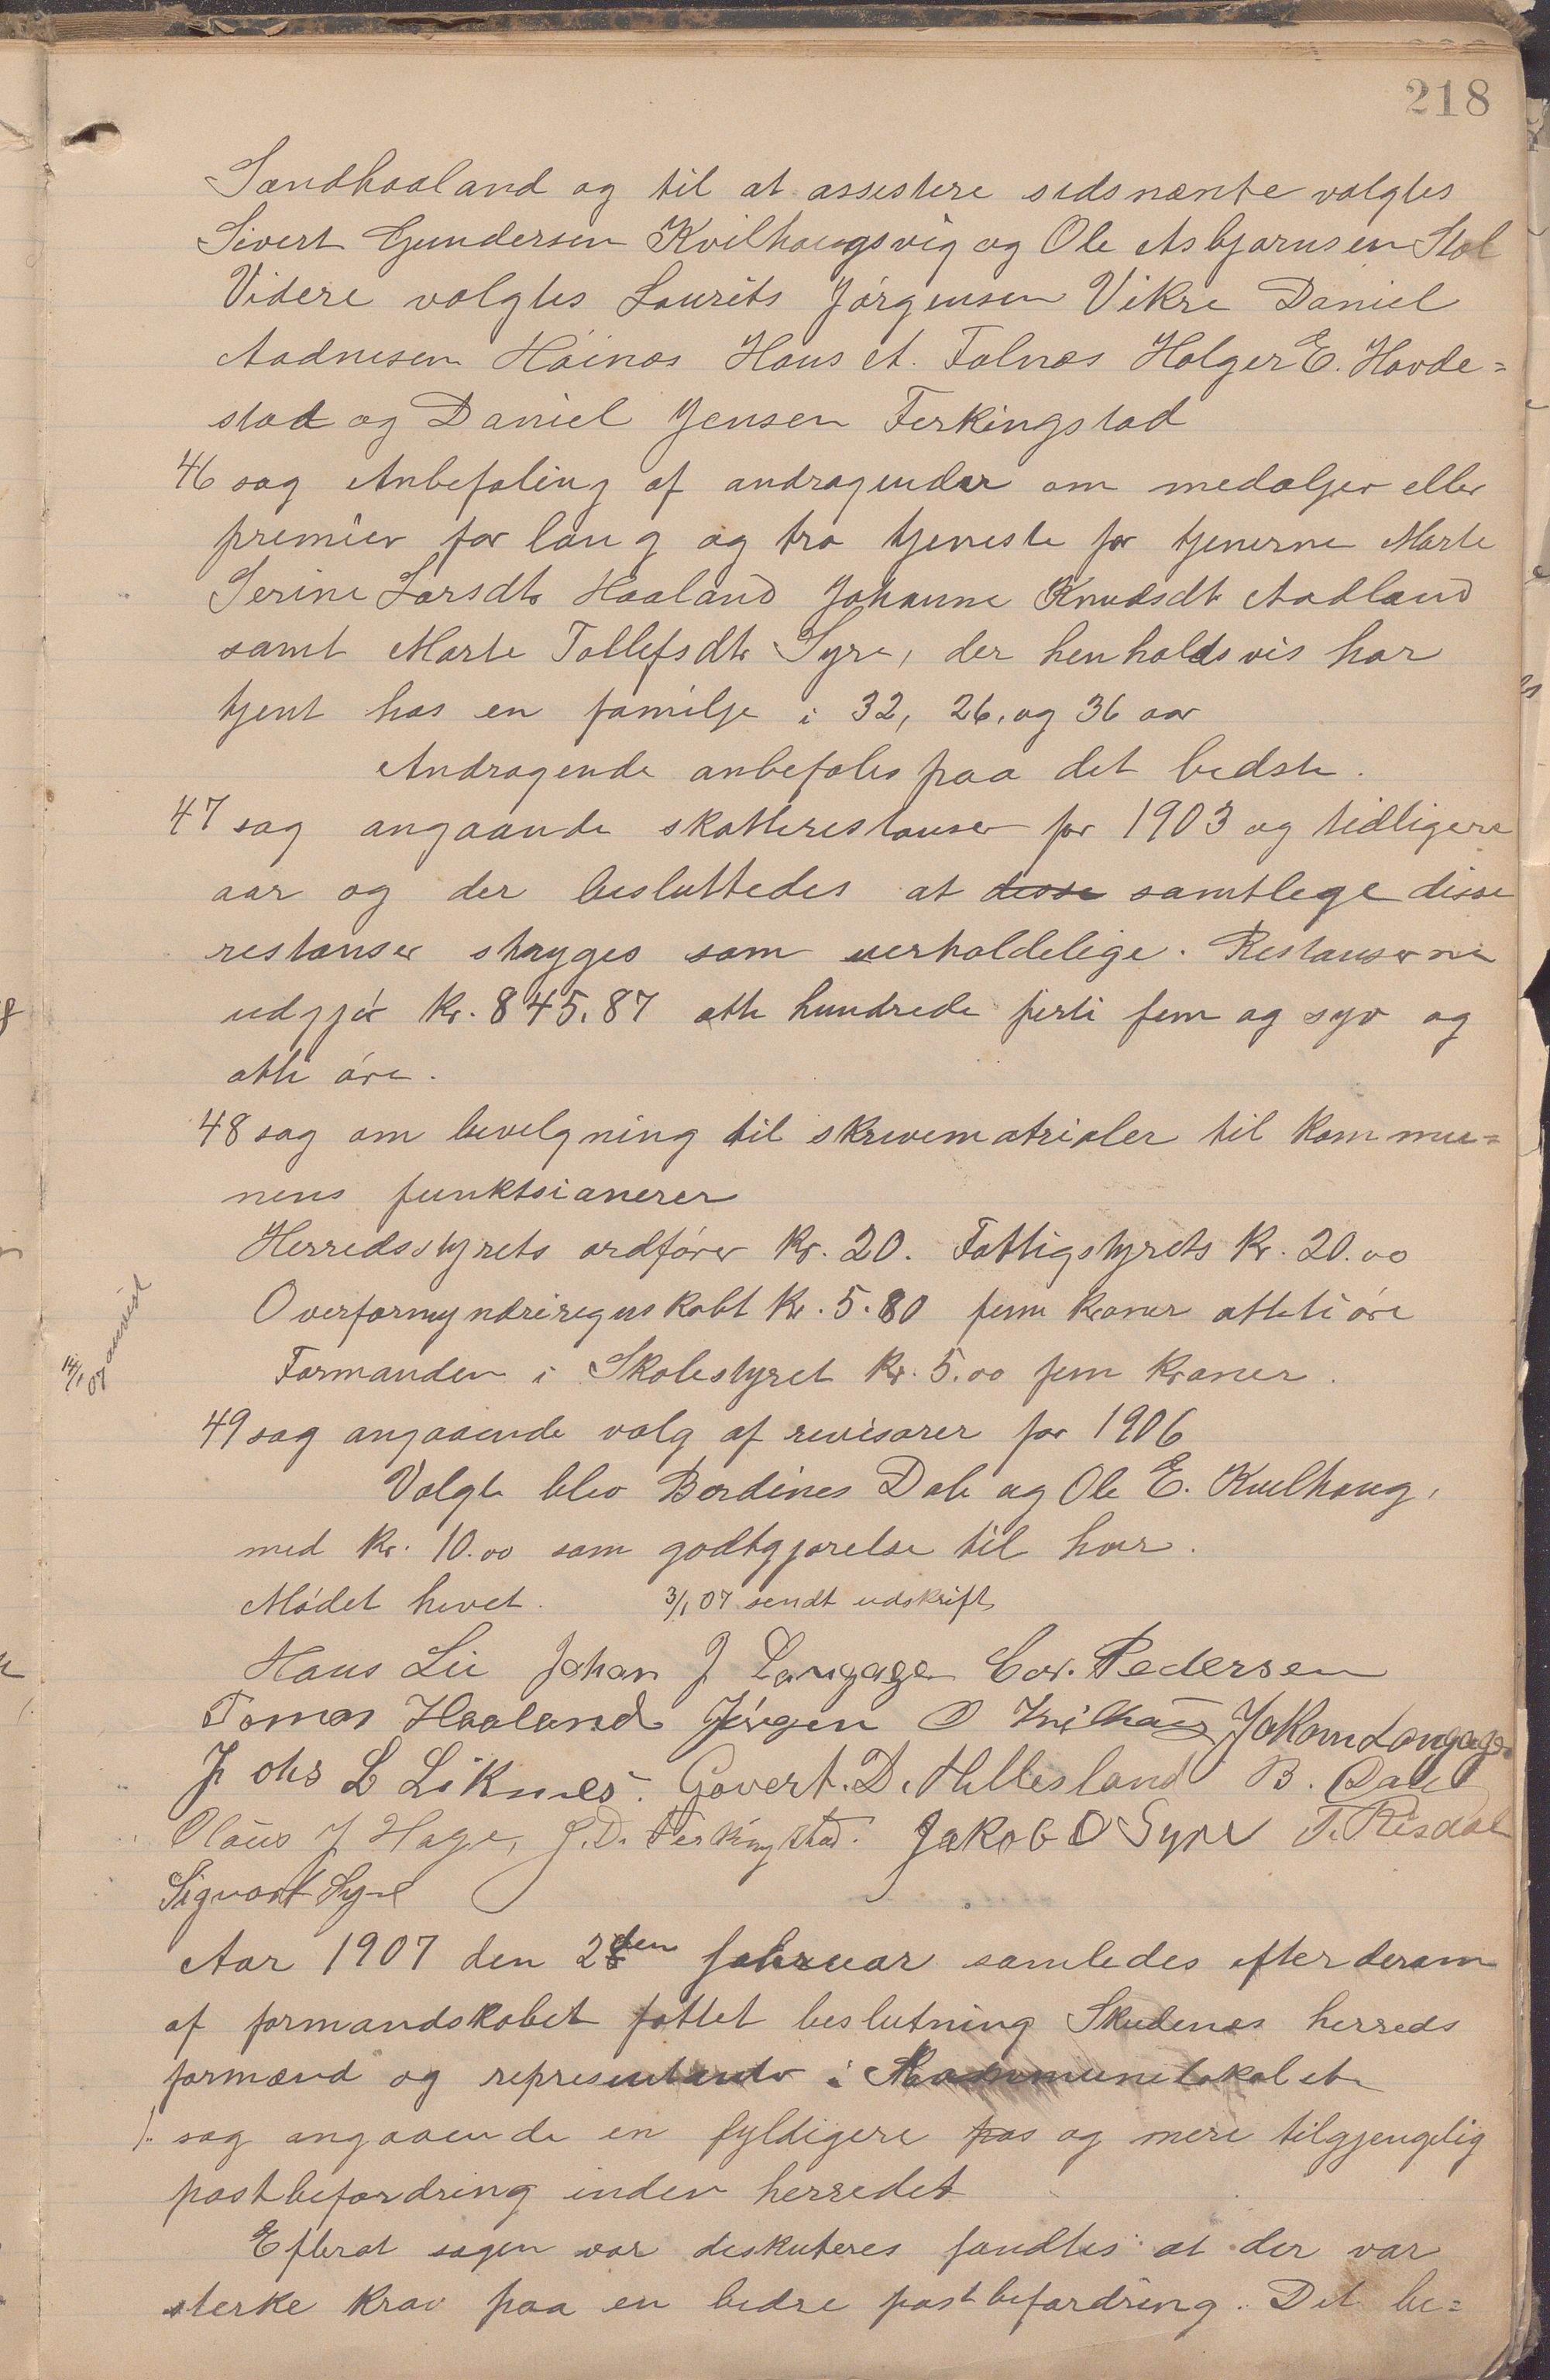 218
Sandhaaland og til at assistere sidsnænte valgtes
Sivert Gundersen Kvilhaugsvig og Ole Asbjørnsen Stol
Videre valgtes Laurits Jørgensen Vikre Daniel
Aadnesen Høines Hans A. Falnes Holger E. Hovde=
stad og Daniel Jensen Ferkingstad
46 sag Anbefaling af andragender om medaljer eller
premier for lang og tro tjeneste for tjenerne Marte
Serine Larsdtr Haaland Johanne Knudsdtr Aadland
samt Marte Tollefsdtr Syre, der henholdsvis har
tjent hos en familje i 32, 26, og 36 aar
Andragende anbefales paa det bedste.
47 sag angaaende skatterestanser for 1903 og tidligere
aar og der besluttedes at disse samtlege disse
restanser stryges som uerholdelige. Restanserne
udgjør kr. 845,87 otte hundrede firti fem og syv og
otti øre.
48 sag om bevilgning til skrivematrialer til kommu=
nens funktsionerer
Herredsstyrets ordfører kr. 20. Fattigstyrets kr. 20.00
Overformynderiregnskabt kr. 5.80 fem kroner otteti øre
Formanden i Skolestyret kr. 5.00 fem kroner.
14/1 07 anvist
49 sag angaaende valg af revisorer for 1906
Valgte blev Bordines Dale og Ole E. Kvilhaug,
med kr. 10.00 som godtgjørelse til hver.
Mødet hevet. 3/1 07 sendt udskrift
Hans Lie Johan J Langager Cor. Pedersen
Tomas Haaland Jørgen O Kvilhaug Jakom Langager
Johs L Liknes. Govert. D. Hillesland B. Dale
Olaus J Hage, J. D. Ferkingstad. Jakob O Syre T. Risdal
Sigvart Syre
Aar 1907 den 28den februar samledes efter derom
af formandskabet fattet beslutning Skudenes herreds
formænd og representanter i Kommunelokalet
1. sag angaaende en fyldigere pos og mere tilgjengelig
postbefordring inden herredet
Efterat sagen var diskuteres fandtes at der var
sterke krav paa en bedre postbefordring. Det be=